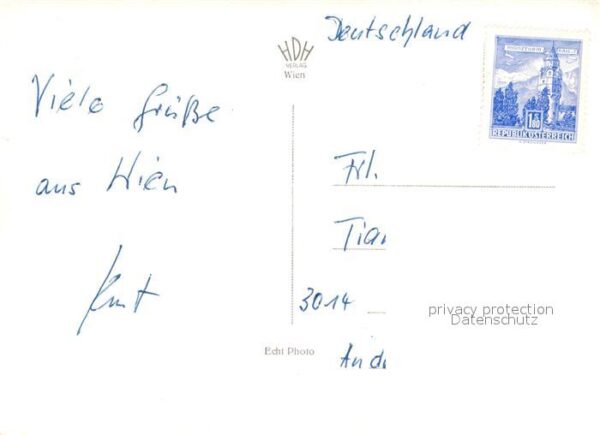 Deutschland
HDH
VERLAG
Wien
Viele Grüße
aus Wien
Kurt
Frl.
3014
privacy protection
Datenschutz
Echt Photo
1.80
REPUBLIK ÖSTERREICH